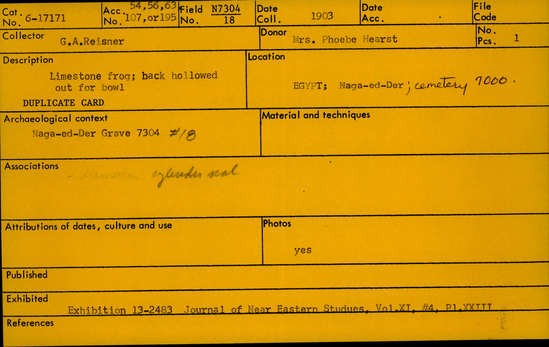 Cat. No. 6-17171 Acc. No. 54,56,63 107,or195 Field No. N7304 18 Date Coll. 1903 Date Acc. File Code
Collector G.A.Reisner Donor Mrs. Phoebe Hearst No. Pcs. 1
Description Location
Limestone frog; back hollowed
out for bowl EGYPT; Naga-ed-Der; cemetery 7000.
DUPLICATE CARD
Archaeological context Material and techniques
Naga-ed-Der Grave 7304 #18
Associations
cylinder seal
Attributions of dates, culture and use Photos
yes
Published
Exhibited
Exhibition 13-2483 Journal of Near Eastern Studues, Vol.XI, #4, Pl.XXIII
References